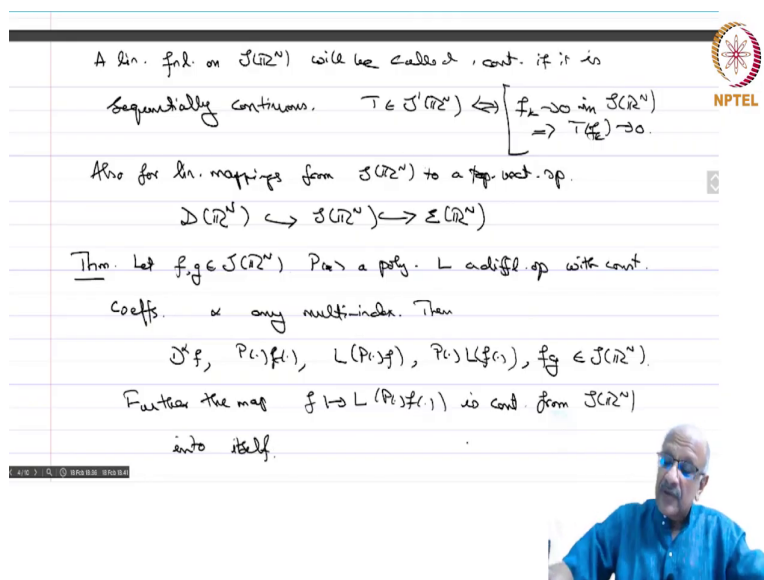 A lin. fnl. on S(ℝᴺ) will be called, cont. if it is
sequentially continuous. T ∈ S'(ℝᴺ) ⟺ [ f_k → 0 in S(ℝᴺ)
⇒ T(f_k) → 0.
NPTEL
Also for lin. mappings from S(ℝᴺ) to a top. vect. sp.
D(ℝᴺ) ↪ S(ℝᴺ) ↪ E(ℝᴺ)
Thm. Let f, g ∈ S(ℝᴺ) P(x) a poly. L a diffl. op with const.
coeffs. α any multi-index. Then
D^α f, P(·)f(·), L(P(·)f), P(·)L(f(·)), fg ∈ S(ℝᴺ).
Further the map f ↦ L(P(·)f(·)) is cont. from S(ℝᴺ)
into itself.
4/10 18 Feb 18:38 18 Feb 18:41